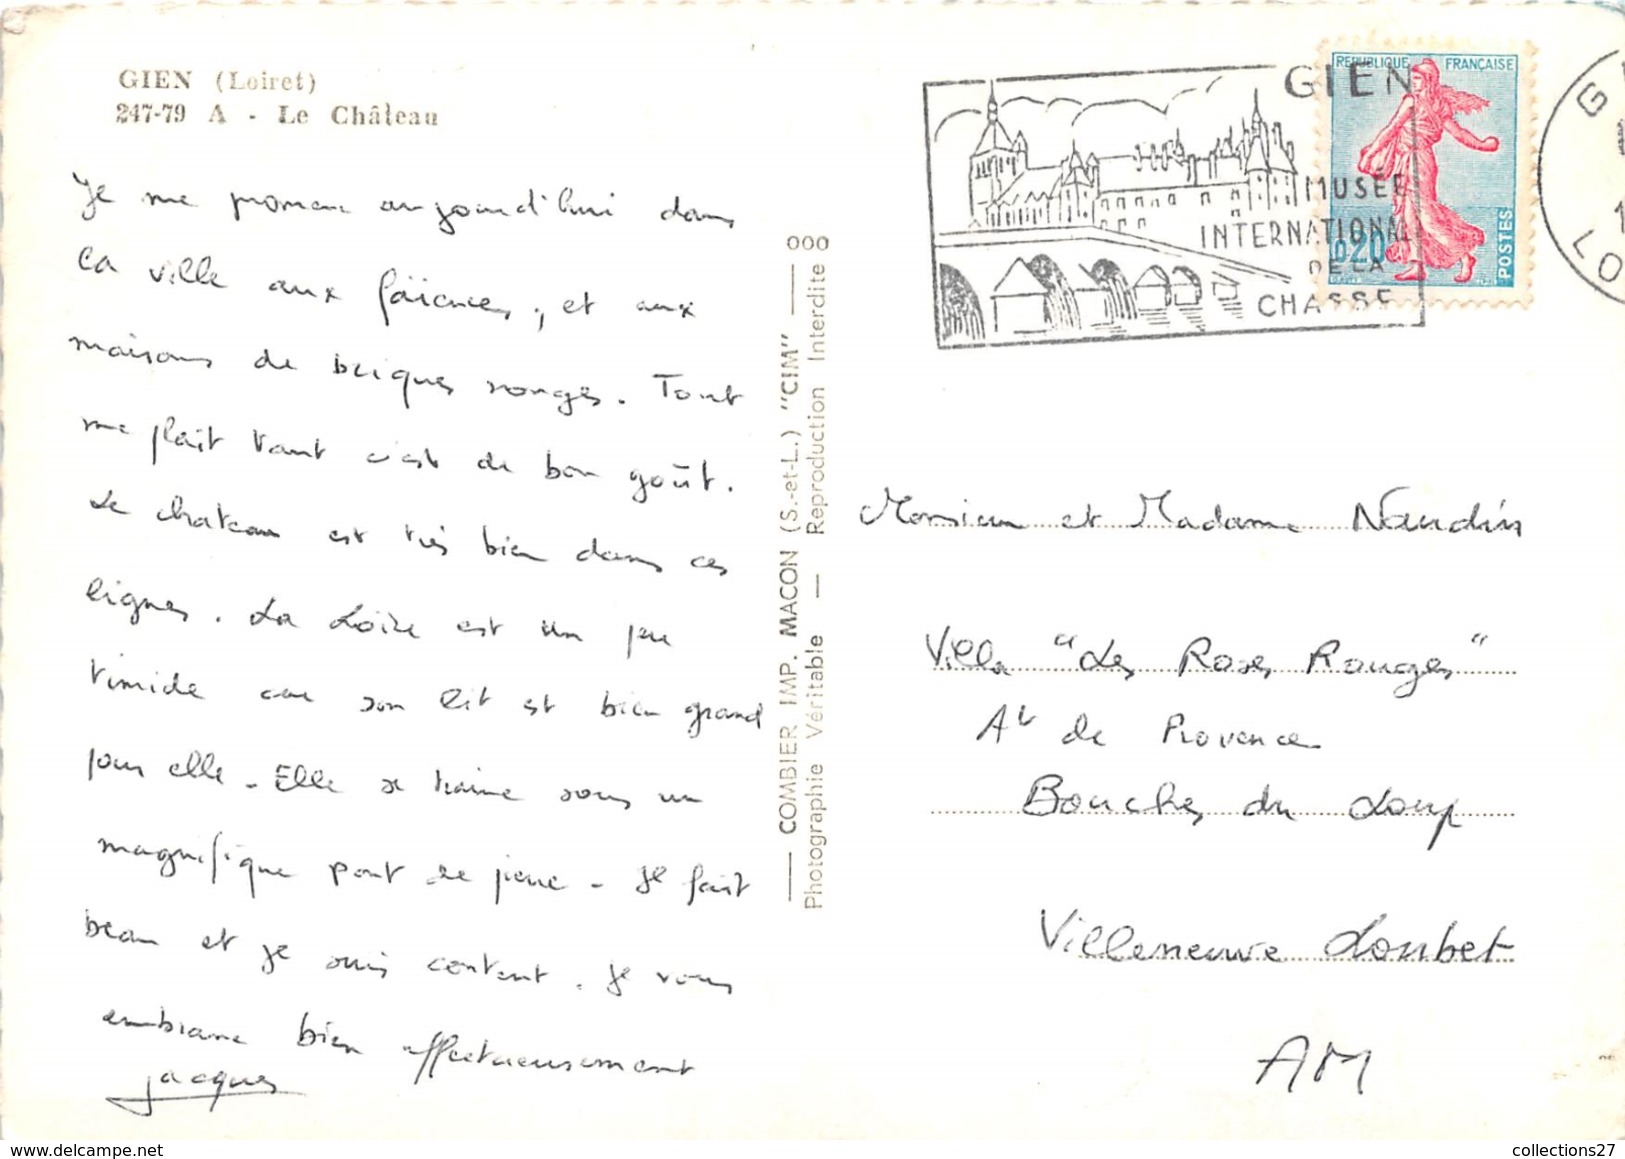 GIEN (Loiret)
247-79 A - Le Château
Je me promène aujourd'hui dans
la ville aux faïences, et aux
maisons de briques rouges. Tout
me plaît tant c'est de bon goût.
Le chateau est très bien dans ces
lignes. La Loire est un peu
timide car son lit est bien grand
pour elle. Elle se traine sous un
magnifique pont de pierre. Il fait
beau et je suis content. Je vous
embrasse bien affectueusement
Jacques
000
COMBIER IMP. MACON (S.-et-L.) "CIM"
Photographie Véritable — Reproduction Interdite
GIEN
MUSÉE
INTERNATIONAL
DE LA
CHASSE
REPUBLIQUE FRANÇAISE
0,20
POSTES
G
LO
Monsieur et Madame Naudin
Villa "Les Roses Rouges"
Al de Provence
Bouches du Loup
Villeneuve Loubet
AM
collections27